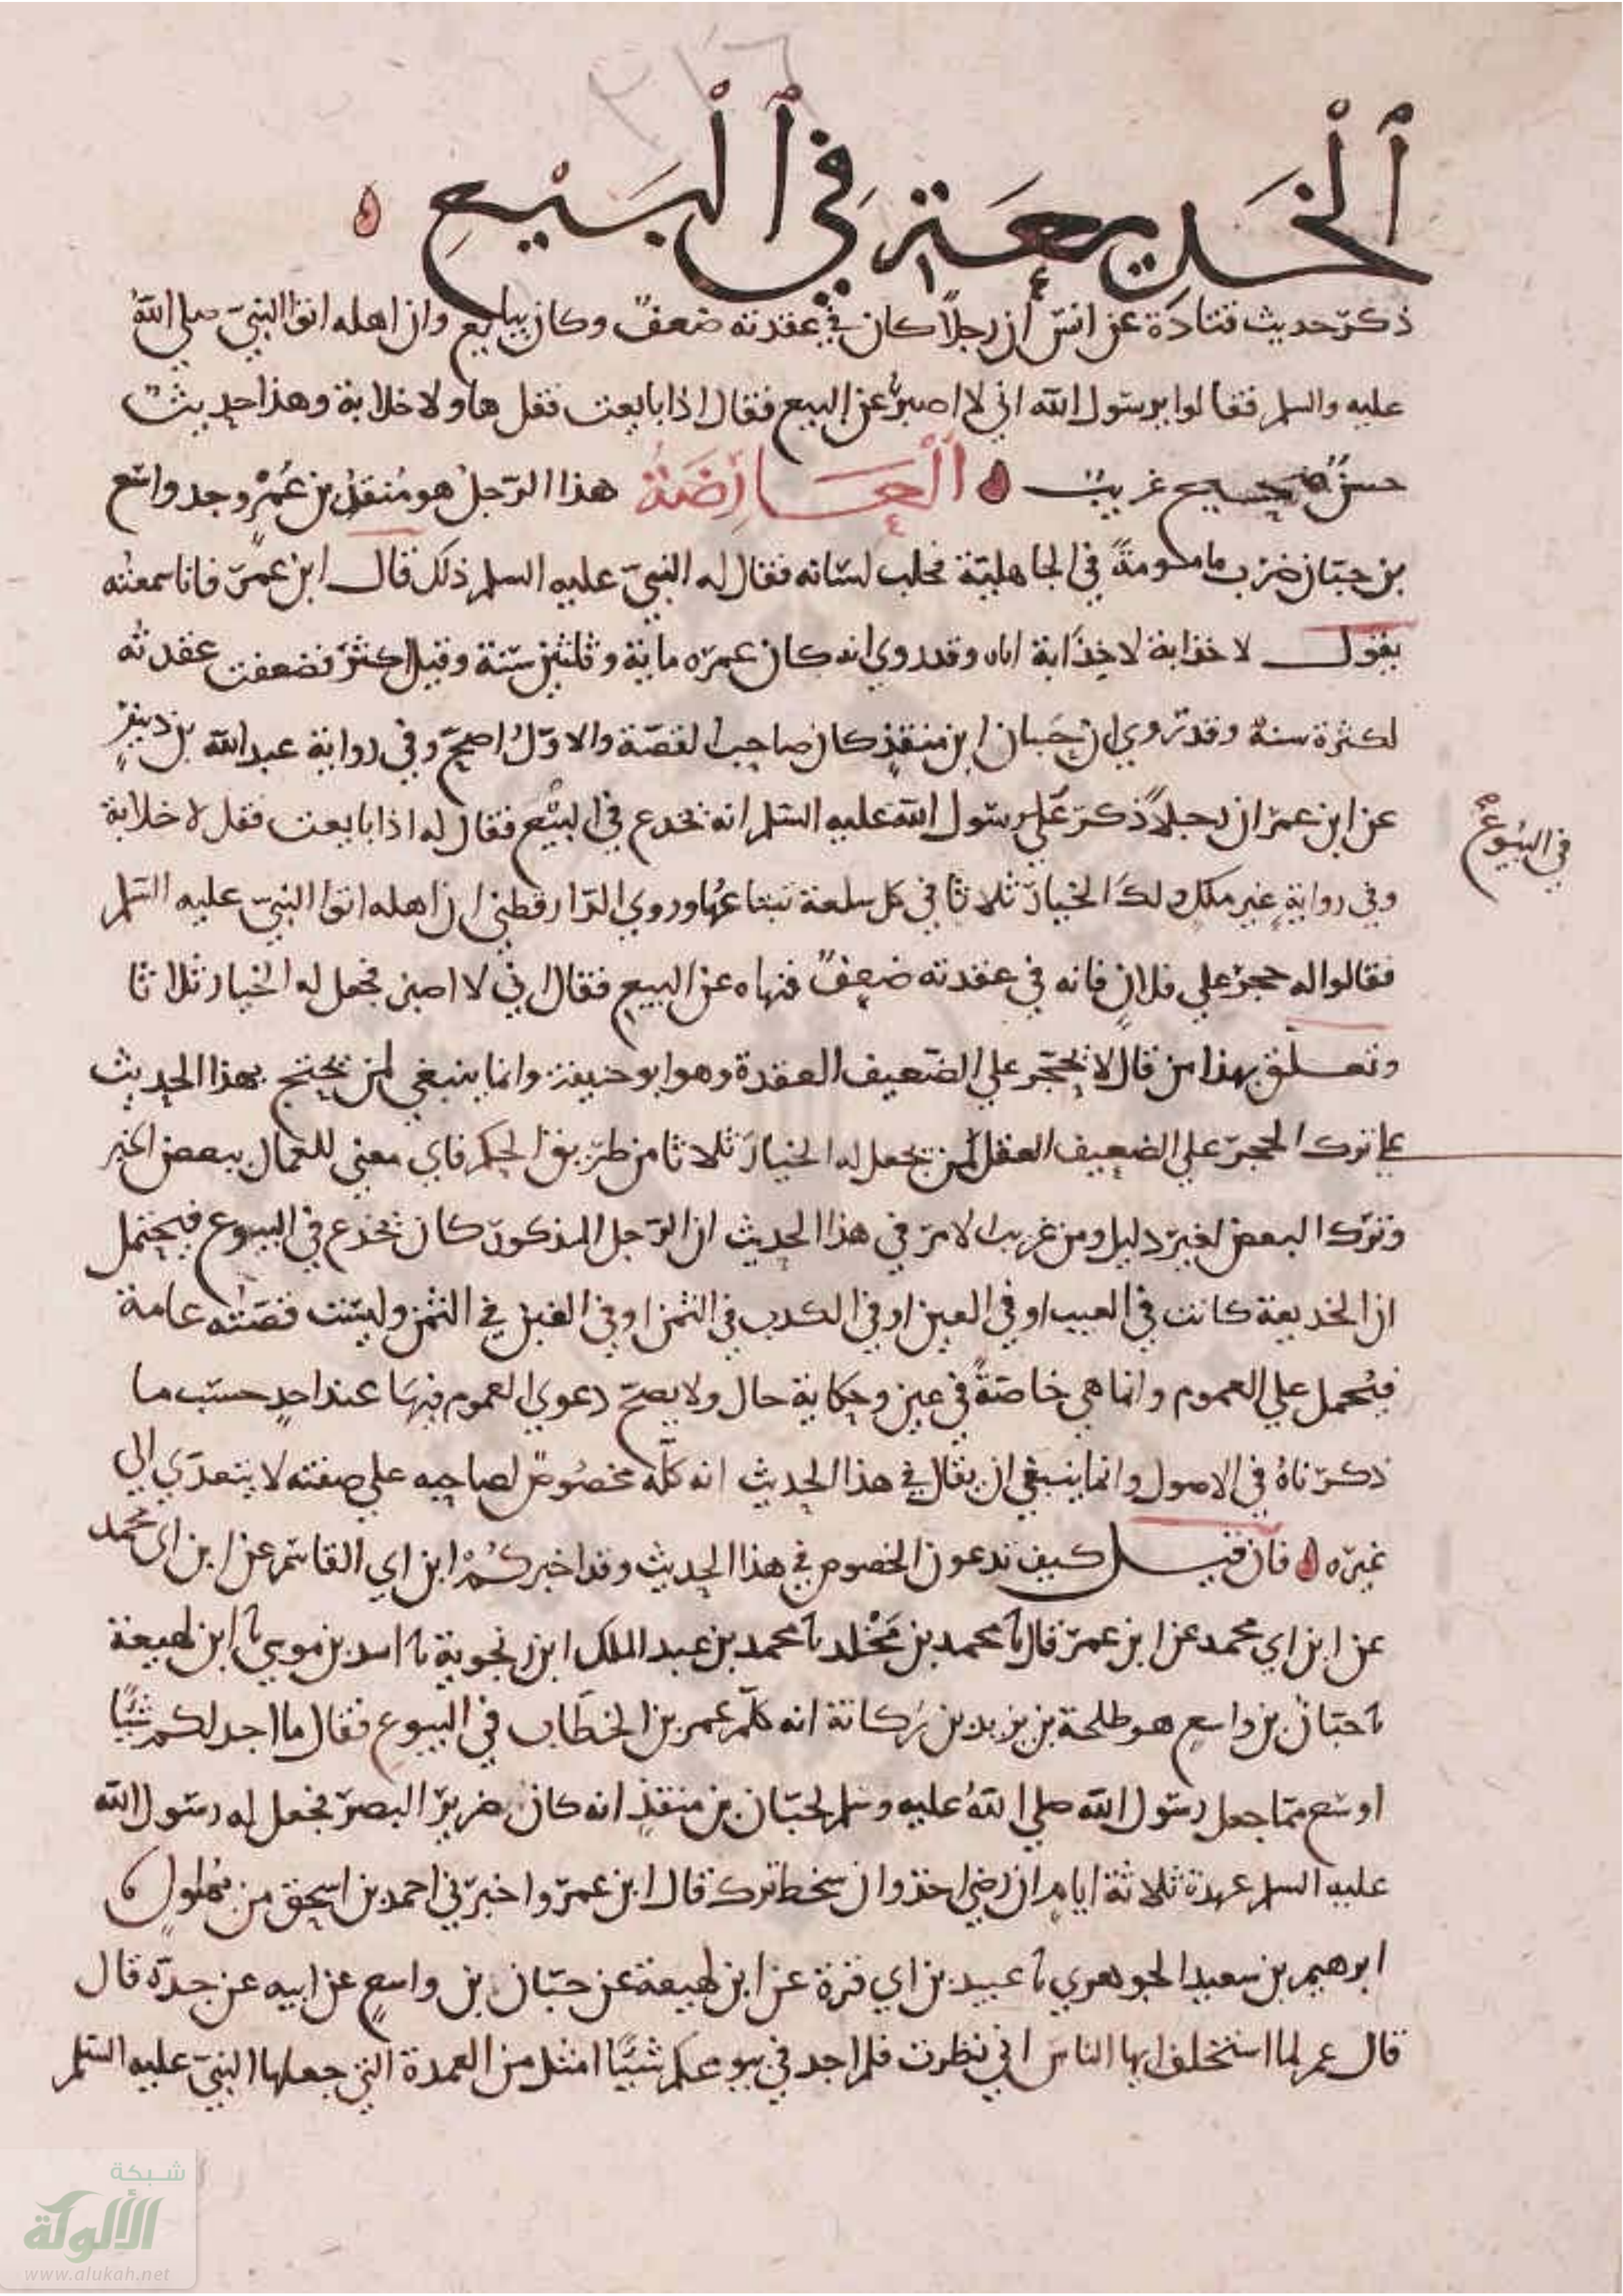 ٣١٦
الخديعة في البيع
ذكر حديث قتادة عن انس أن رجلاً كان في عقدته ضعف وكان يبايع وان اهله اتوا النبي صلى الله
عليه والسلم فقالوا يرسول الله اني لا اصبر عن البيع فقال اذا بايعت فقل هاو لا خلابة وهذا حديث
حسن صحيح غريب العارضة هذا الرجل هو منقذ بن عمر وجد واسع
بن حبان ضرب مامومة في الجاهلية فخلب لسانه فقال له النبي عليه السلم ذلك قال ابن عمر فانا سمعته
يقول لا خذابة لا خذابة اياه وقد روي انه كان عمره ماية وثلثين سنة وقيل اكثر فضعفت عقدته
لكثرة سنه وقد روي ان حبان ابن منقذ كان صاحب القصة والاول اصح وفي رواية عبد الله بن دينر
عن ابن عمر ان رجلاً ذكر علي رسول الله عليه السلم انه يخدع في البيع فقال له اذا بايعت فقل لا خلابة
في البيوع
وفي رواية غير ملك ولك الخيار ثلاثا في كل سلعة تبتاعها وروي الدارقطني ان اهله اتوا النبي عليه السلم
فقالوا له حجر علي فلان فانه في عقدته ضعف فنهاه عن البيع فقال اني لا اصبر فجعل له الخيار ثلاثا
وتعلق بهذا من قال لا يحجر علي الضعيف العقدة وهو ابو حنيفة وانما ينبغي لمن يحتج بهذا الحديث
علي ترك الحجر علي الضعيف العقل لمن يجعل له الخيار ثلاثا من طريق الحكم فاي معني للعمال ببعض الخبر
وترك البعض لغير دليل ومن غريب الامر في هذا الحديث ان الرجل المذكور كان يخدع في البيوع فيحتمل
ان الخديعة كانت في العيب او في العين او في الكدب في الثمن او في الغبن في الثمن وليست قصته عامة
فيحمل علي العموم وانما هي خاصة في عين وحكاية حال ولا يصح دعوي العموم فيها عند احد حسب ما
ذكرناه في الاصول وانما ينبغي ان يقال في هذا الحديث انه كله مخصوص لصاحبه علي صفته لا يتعدي الي
غيره فان قيل كيف تدعون الخصوص في هذا الحديث وقد اخبركم ابن ابي القاسم عن ابن ابي محمد
عن ابن ابي محمد عن ابن عمر قال نا محمد بن مخلد نا محمد بن عبد الملك ابن زنجوية نا اسد بن موسي نا ابن لهيعة
نا حبان بن واسع هو طلحة بن يزيد بن ركانة انه كلم عمر بن الخطاب في البيوع فقال ما اجد لكم شيئا
اوسع مما جعل رسول الله صلي الله عليه وسلم لحبان بن منقذ انه كان ضرير البصر فجعل له رسول الله
عليه السلم عهدة ثلاثة ايام ان رضي اخذ وان سخط ترك قال ابن عمر واخبرني احمد بن اسحق من بهلول نا
ابرهيم بن سعيد الجوهري نا عبيد بن ابي قرة عن ابن لهيعة عن حبان بن واسع عن ابيه عن جده قال
قال عمر لما استخلف ايها الناس اني نظرت فلم اجد في بيوعكم شيئا امثل من العمدة التي جعلها النبي عليه السلم
شبكة
الألوكة
www.alukah.net